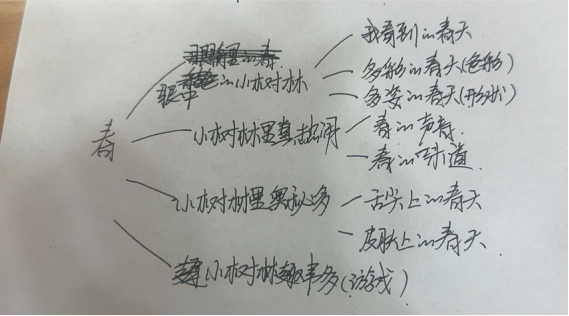 春
眼中的小树林
我看到的春天
多彩的春天(色彩)
多姿的春天(形状)
小树林里真热闹
春的声音
春的味道
小树林里奥秘多
舌尖上的春天
皮肤上的春天
小树林趣事多(游戏)